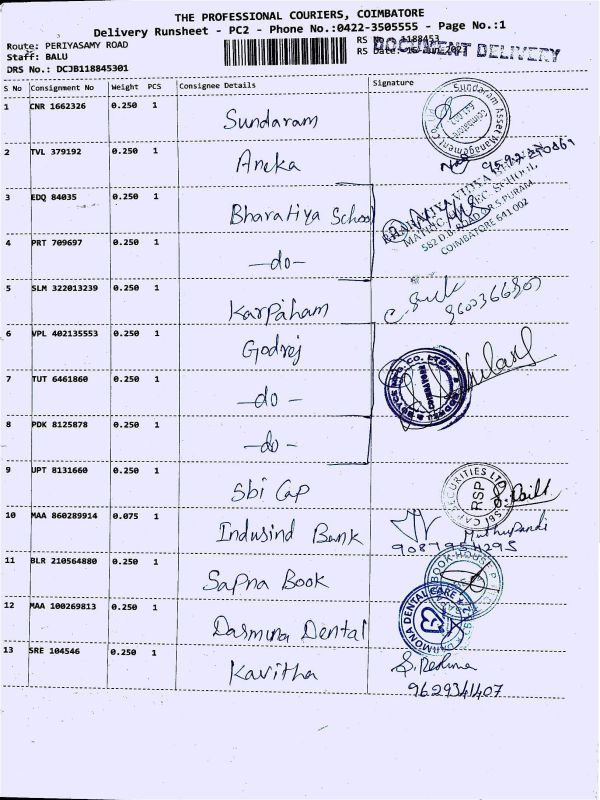 THE PROFESSIONAL COURIERS, COIMBATORE
Delivery Runsheet - PC2 - Phone No.:0422-3505555 - Page No.:1
Route: PERIYASAMY ROAD
RS No.: 1188453
Staff: BALU
RS Date:
DOCUMENT DELIVERY
DRS No.: DCJB118845301
S No Consignment No Weight PCS Consignee Details Signature
1 CNR 1662326 0.250 1 Sundaram
Sundaram Asset Management Co
2 TVL 379192 0.250 1 Aneka
3 EDQ 84035 0.250 1 Bharatiya School
BHARATIYA VIDYA
MATRIC. SEC. SCHOOL
582 D.B. ROAD R.S PURAM
COIMBATORE 641 002
4 PRT 709697 0.250 1 -do-
5 SLM 322013239 0.250 1 Karpaham
6 VPL 402135553 0.250 1 Godrej
7 TUT 6461860 0.250 1 -do-
8 PDK 8125878 0.250 1 -do-
9 UPT 8131660 0.250 1 Sbi Cap
SBI CAP SECURITIES LTD
RSP
10 MAA 860289914 0.075 1 Indusind Bank
11 BLR 210564880 0.250 1 Sapna Book
BOOK HOUSE
12 MAA 100269813 0.250 1 Dasmuna Dental
DENTAL CARE
13 SRE 104546 0.250 1 Kavitha S. Reshma
9629341407